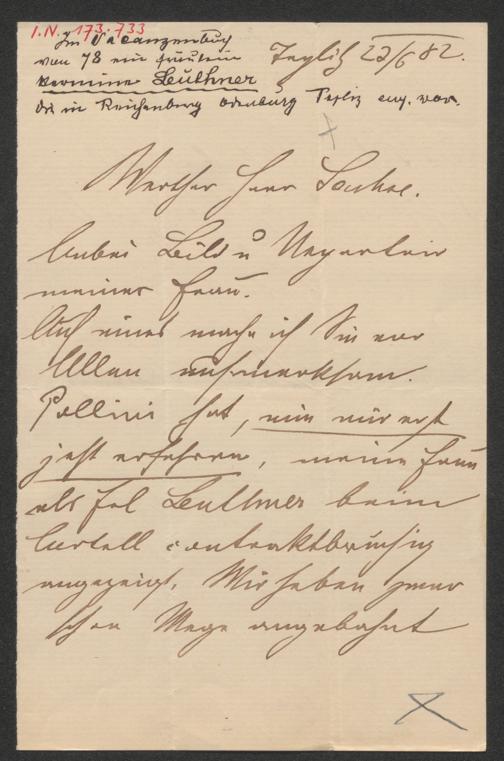 I.N. 173.733
Im Vacanzenbuch
von 78 ein Fräulein
Hermine Leuthner
die in Reichenberg Odenburg Teplitz eng. war.
Teplitz 23/6 82.
Werther Herr
Anbei Bild u Repertoir
meiner Frau.
Auf eines mache ich Sie vor
Allem aufmerksam.
Pollini hat, wie wir erst
jetzt erfahren, meine Frau
als Frl Leuthner beim
Cartell contraktbrüchig
angezeigt. Wir haben zwar
schon Wege angebahnt